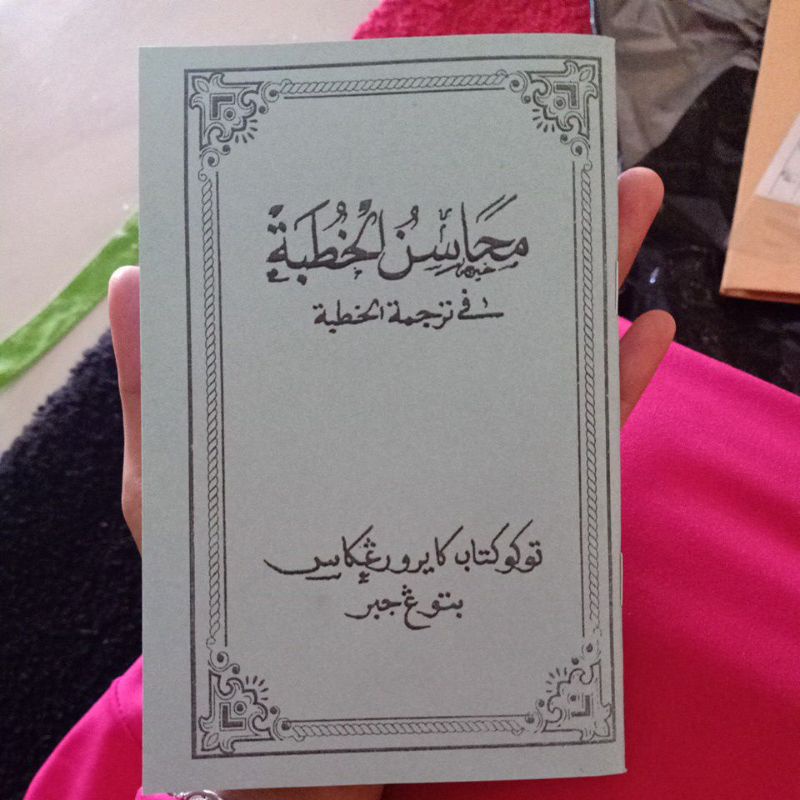 مَحَاسِنُ الْخُطْبَةِ
في ترجمة الخطبة
توكو كتاب كايرو رڠكاس
بتوڠ جبر